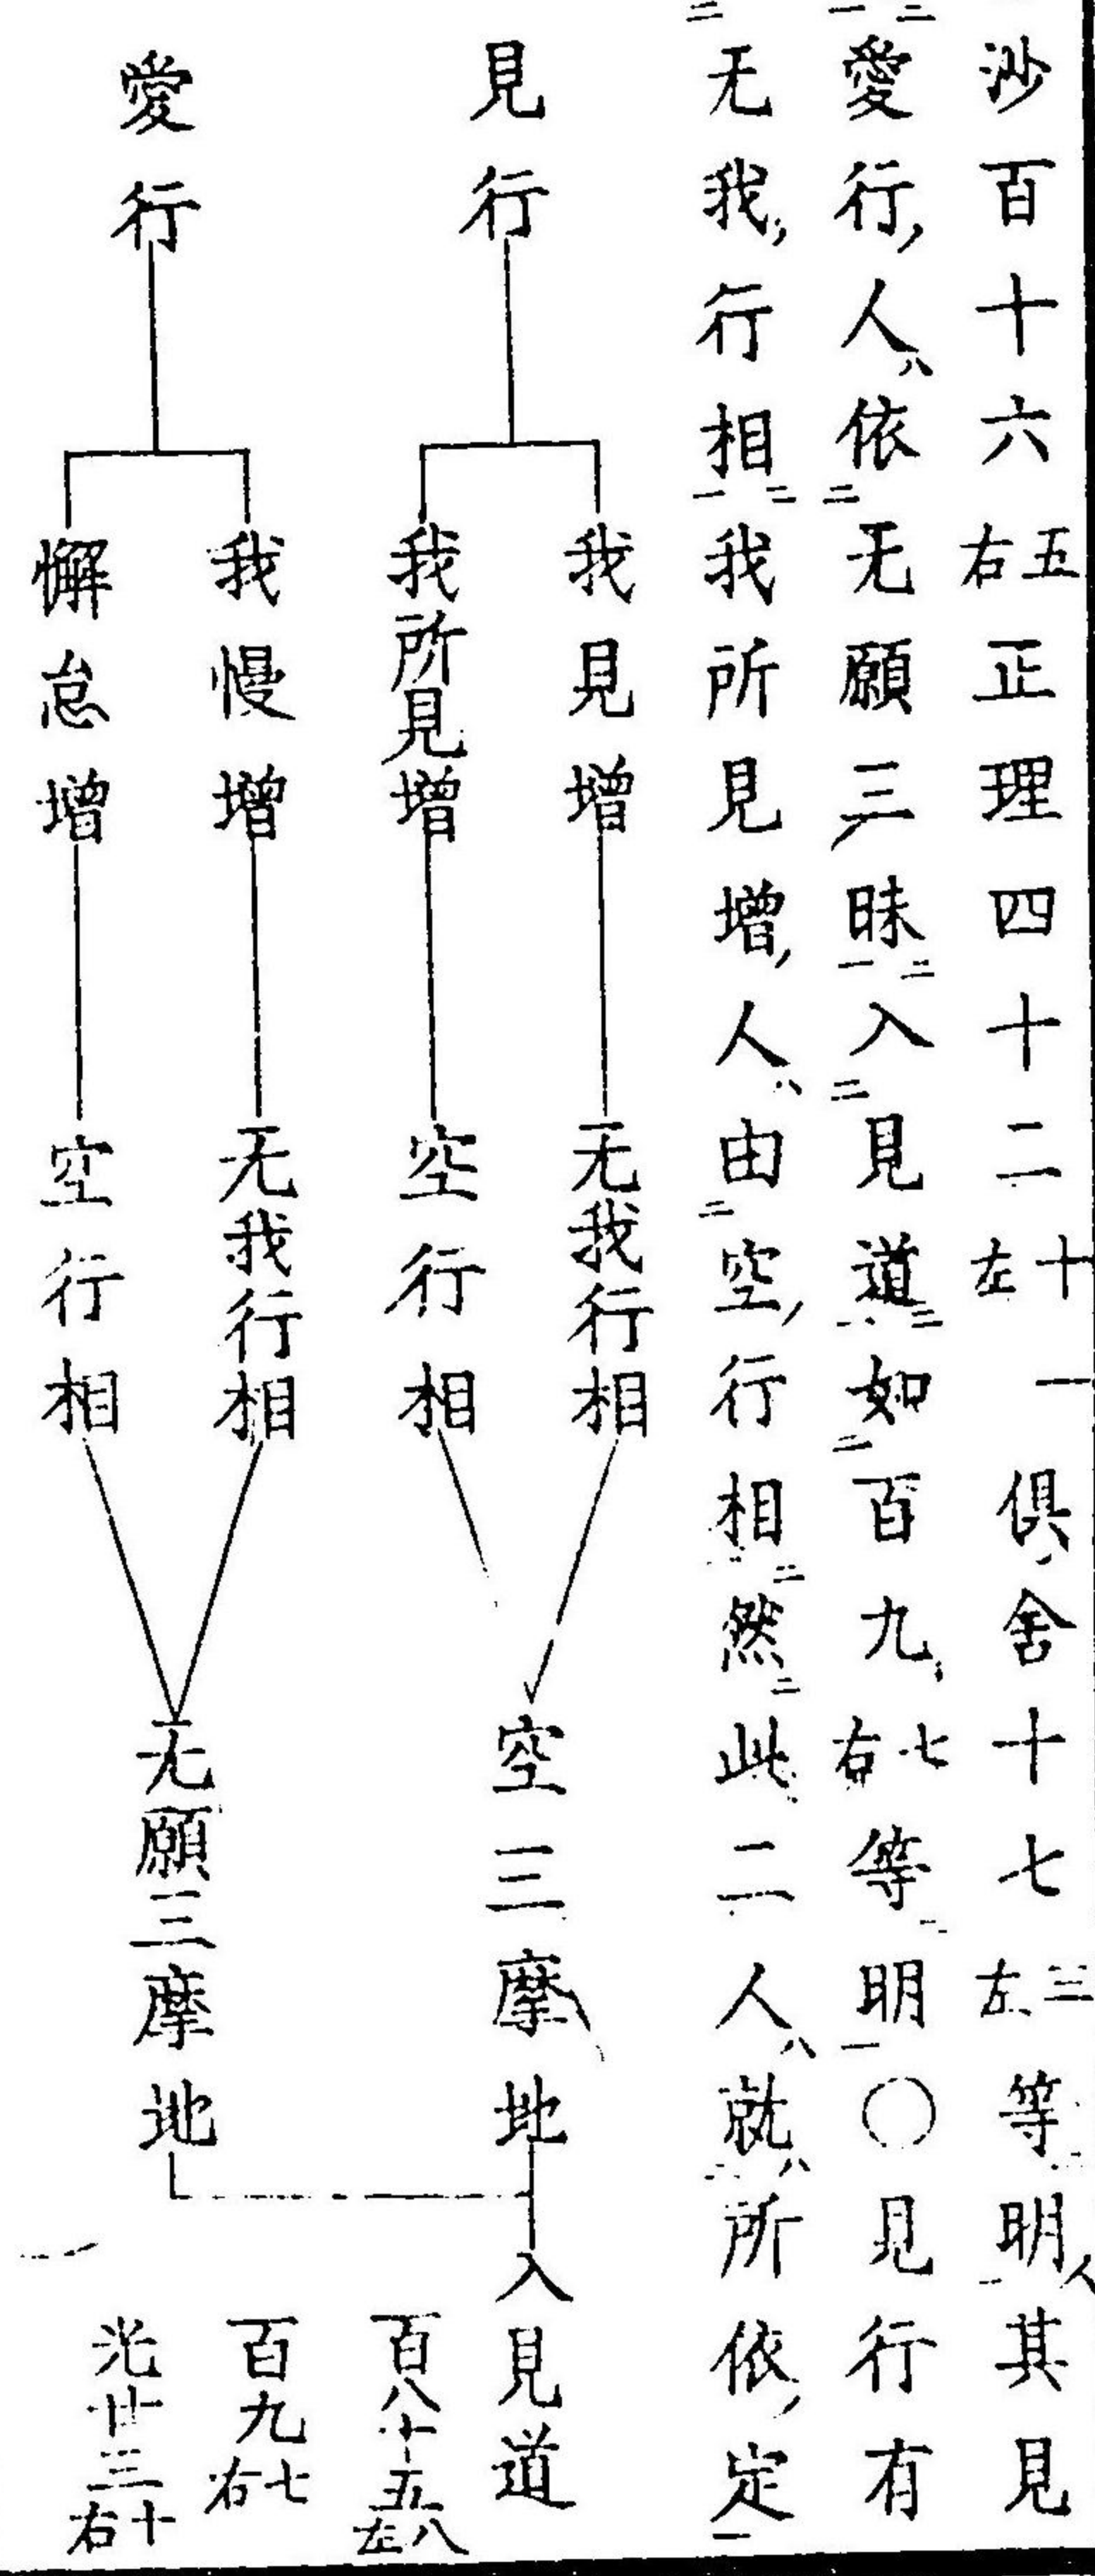 沙百十六五右正理四十二十一左俱舍十七三左等明其見
愛行人依无願三昧入見道如百九七右等明〇見行有
无我行相我所見增人由空行相然此二人就所依定
見行
我見增
无我行相
我所見增
空行相
空三摩地
入見道
愛行
我慢增
无我行相
懈怠增
空行相
无願三摩地
百八十五八左
百九七右
光廿三十右